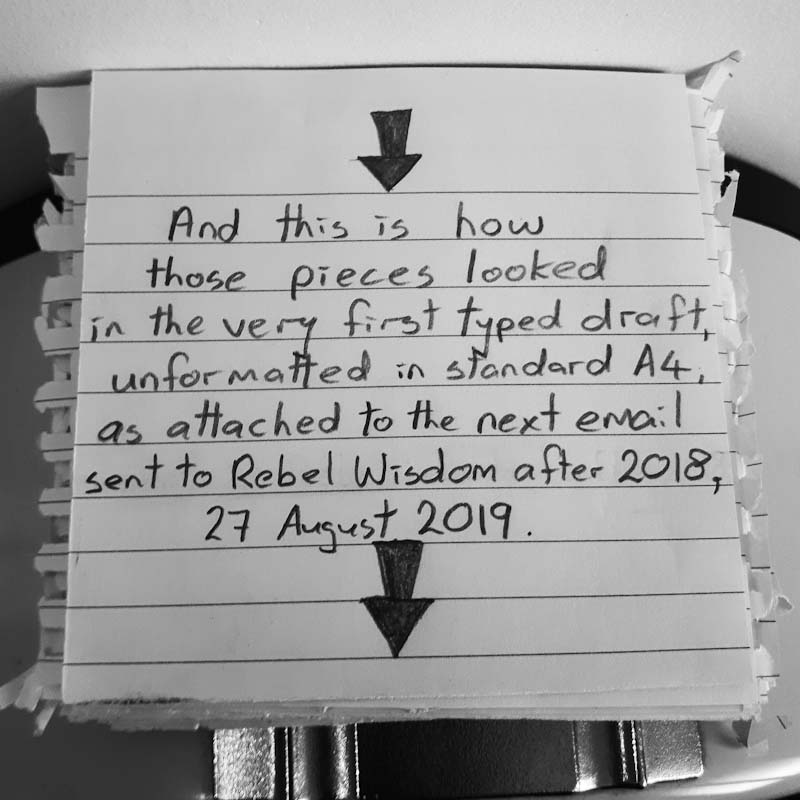 And this is how
those pieces looked
in the very first typed draft,
unformatted in standard A4,
as attached to the next email
sent to Rebel Wisdom after 2018,
27 August 2019.